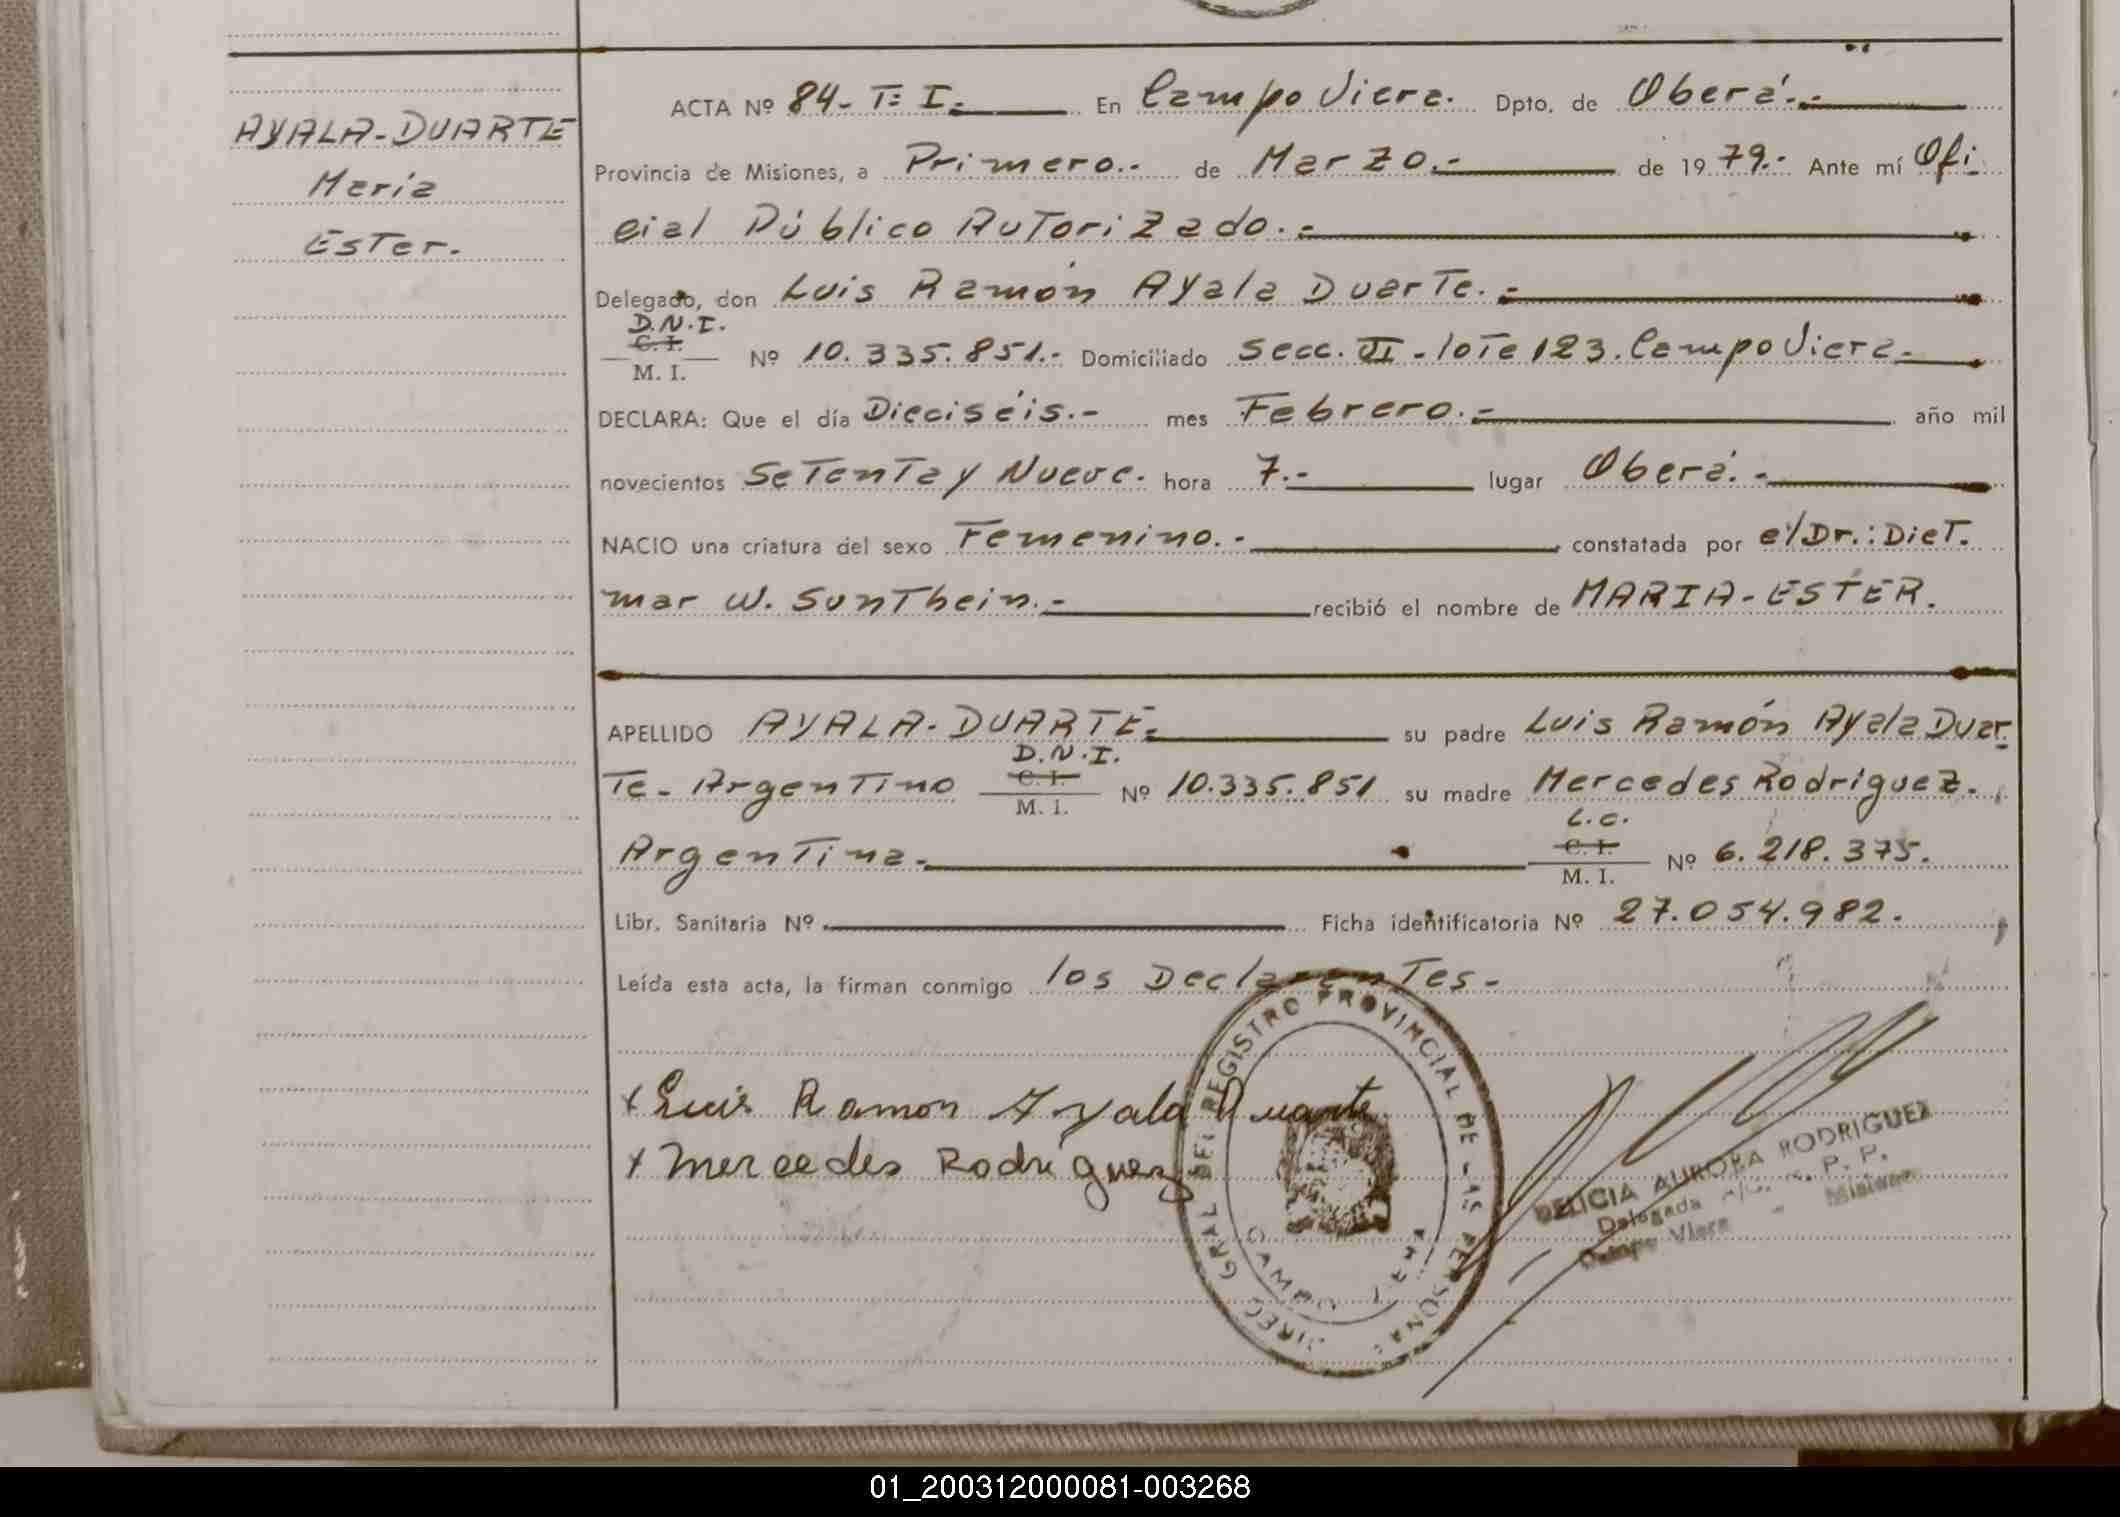 AYALA-DUARTE
María
Ester.
ACTA Nº 84- T= I.- En Campo Viera. Dpto. de Oberá.-
Provincia de Misiones, a Primero.- de Marzo.- de 1979.- Ante mí Ofi
cial Público Autorizado.-
Delegado, don Luis Ramón Ayala Duarte.-
D.N.I.
C. I.
M. I.
Nº 10.335.851.- Domiciliado Secc. VI - lote 123. Campo Viera-
DECLARA: Que el día Dieciséis.- mes Febrero.- año mil
novecientos Setenta y Nueve. hora 7.- lugar Oberá.-
NACIO una criatura del sexo Femenino.- constatada por el Dr.: Diet.
mar W. Sonthein.- recibió el nombre de MARIA-ESTER.
APELLIDO AYALA-DUARTE- su padre Luis Ramón Ayala Duar-
te- Argentino
D.N.I.
C. I.
M. I.
Nº 10.335.851 su madre Mercedes Rodríguez.
Argentina.-
L.C.
C. I.
M. I.
Nº 6.218.375.
Libr. Sanitaria Nº Ficha identificatoria Nº 27.054.982.
Leída esta acta, la firman conmigo los Declarantes-
x Luis Ramon Ayala Duarte
x Mercedes Rodríguez
DIREC GRAL DEL REGISTRO PROVINCIAL DE LAS PERSONAS
CAMPO VIERA
DELICIA AURORA RODRIGUEZ
Delegada R. P. P.
Campo Viera - Misiones
01_200312000081-003268